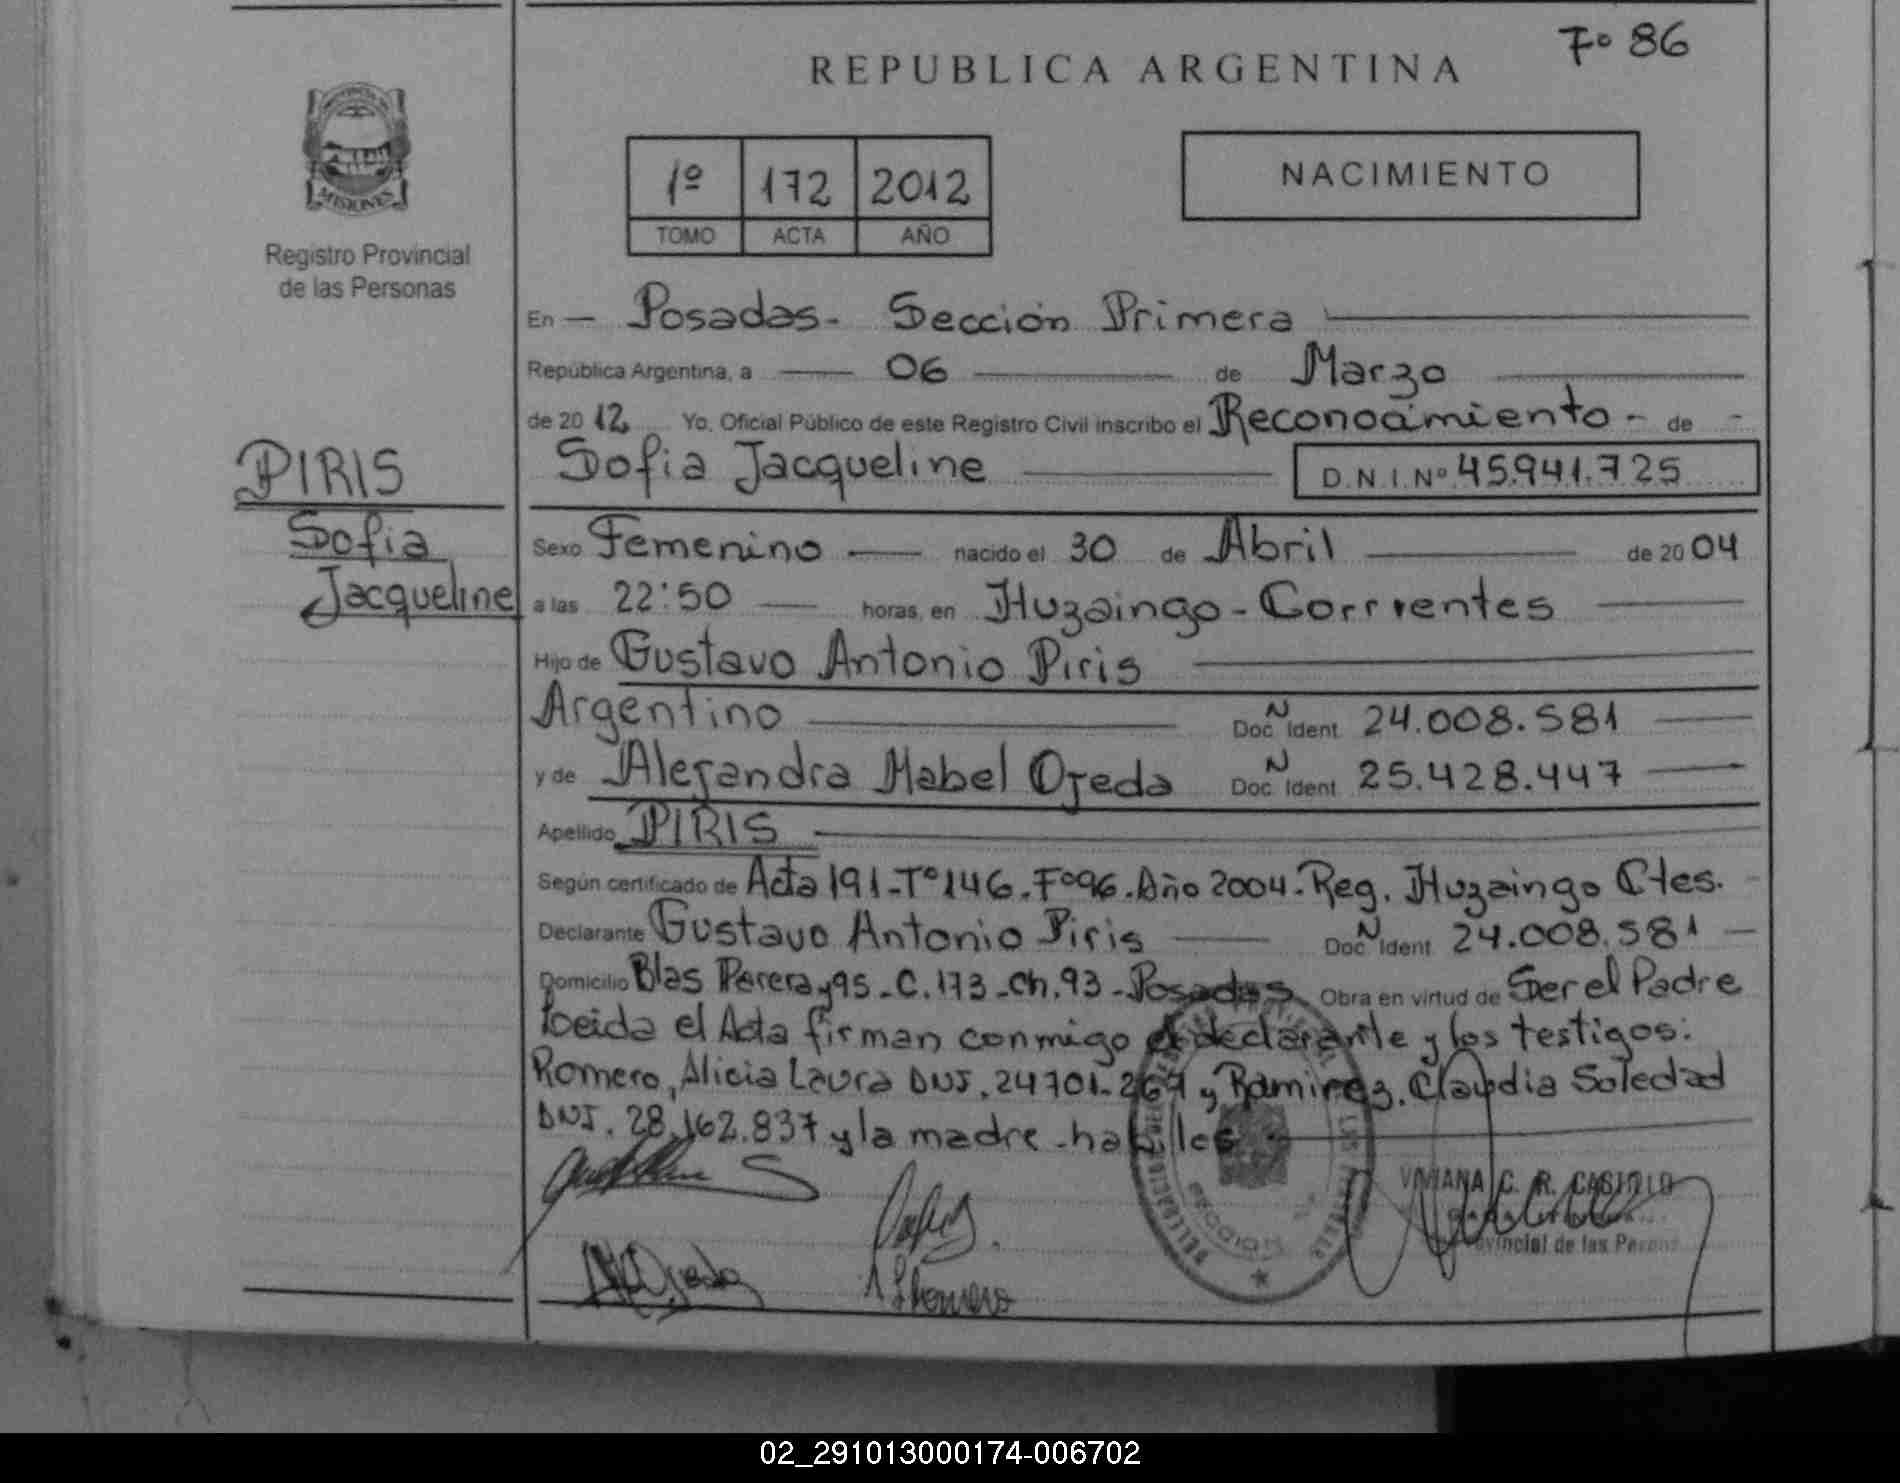 Fº 86
REPUBLICA ARGENTINA
PROVINCIA DE
MISIONES
Registro Provincial
de las Personas
1º 172 2012
TOMO ACTA AÑO
NACIMIENTO
En — Posadas - Sección Primera
República Argentina, a 06 de Marzo
de 2012 Yo, Oficial Público de este Registro Civil inscribo el Reconocimiento - de -
Sofia Jacqueline D.N.I.Nº 45.941.725
PIRIS
Sofia
Jacqueline
Sexo Femenino — nacido el 30 de Abril de 2004
a las 22:50 — horas, en Ituzaingo - Corrientes
Hijo de Gustavo Antonio Piris
Argentino Doc. Ident. N 24.008.581
y de Alejandra Mabel Ojeda Doc. Ident. N 25.428.447
Apellido PIRIS
Según certificado de Acta 191-Tº146-Fº96-Año 2004-Reg. Ituzaingo Ctes. -
Declarante Gustavo Antonio Piris Doc. Ident. N 24.008.581 -
Domicilio Blas Parera y 95 - C.173 - Ch.93 - Posadas Obra en virtud de Ser el Padre
Leida el Acta firman conmigo el declarante y los testigos:
Romero, Alicia Laura DNI. 24701.269 y Ramirez, Claudia Soledad
DNI. 28.162.837 y la madre - habiles
VIVIANA C. R. CASTILLO
Provincial de las Person
02_291013000174-006702